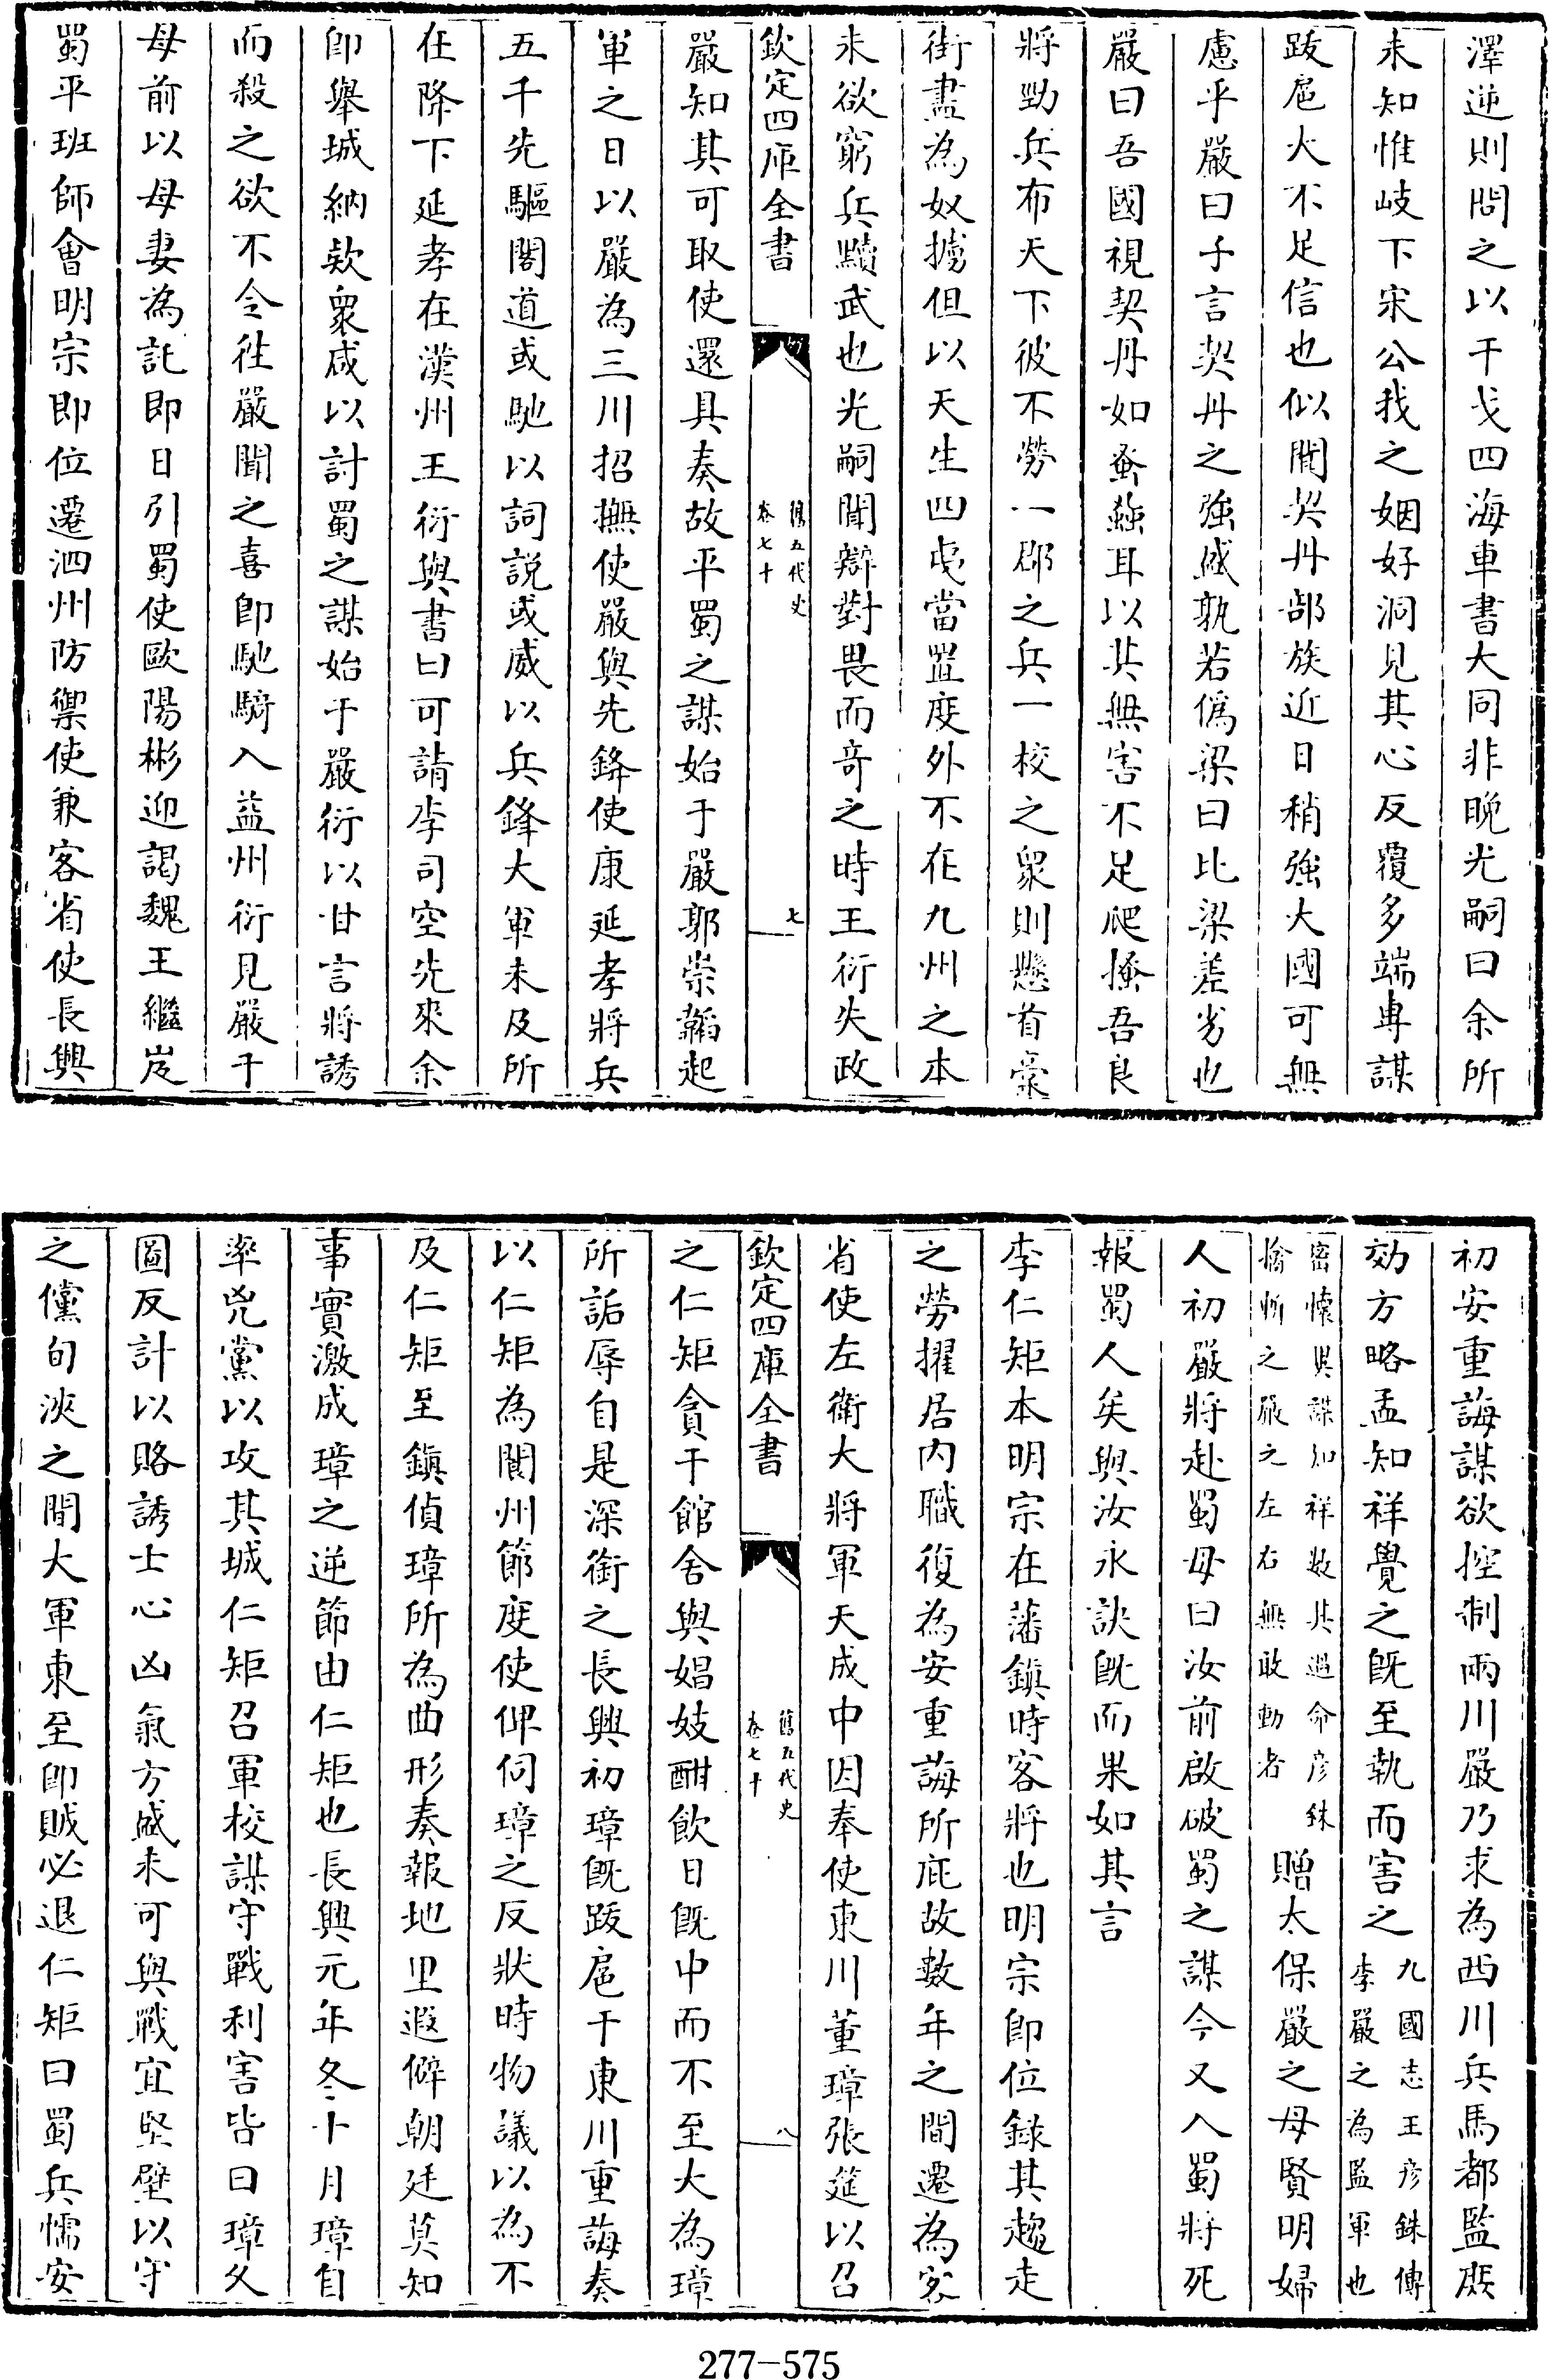 澤逆則問之以干戈四海車書大同非晚光嗣曰余所
未知惟岐下宋公我之姻好洞見其心反覆多端專謀
跋扈大不足信也似聞契丹部族近日稍強大國可無
慮乎嚴曰子言契丹之強盛孰若偽梁曰比梁差劣也
嚴曰吾國視契丹如蚤蝨耳以其無害不足爬搔吾良
將勁兵布天下彼不勞一郡之兵一校之衆則懸首槀
街盡為奴擄但以天生四夷當置度外不在九州之本
未欲窮兵黷武也光嗣聞辯對畏而奇之時王衍失政
欽定四庫全書
舊五代史
卷七十
七
嚴知其可取使還具奏故平蜀之謀始于嚴郭崇韜起
軍之日以嚴為三川招撫使嚴與先鋒使康延孝將兵
五千先驅閣道或馳以詞說或威以兵鋒大軍未及所
在降下延孝在漢州王衍與書曰可請李司空先來余
即舉城納款衆咸以討蜀之謀始于嚴衍以甘言將誘
而殺之欲不令徃嚴聞之喜即馳騎入益州衍見嚴于
母前以母妻為託即日引蜀使歐陽彬迎謁魏王繼岌
蜀平班師會明宗即位遷泗州防禦使兼客省使長興
初安重誨謀欲控制兩川嚴乃求為西川兵馬都監庶
効方略孟知祥覺之既至執而害之
九國志王彦銖傳
李嚴之為監軍也
密懷異謀知祥數其過命彦銖
擒斬之嚴之左右無敢動者
贈太保嚴之母賢明婦
人初嚴將赴蜀母曰汝前啟破蜀之謀今又入蜀將死
報蜀人矣與汝永訣既而果如其言
李仁矩本明宗在藩鎮時客將也明宗即位錄其趨走
之勞擢居内職復為安重誨所庇故數年之間遷為客
省使左衛大將軍天成中因奉使東川董璋張筵以召
欽定四庫全書
舊五代史
卷七十
八
之仁矩貪于館舍與娼妓酣飲日既中而不至大為璋
所詬辱自是深銜之長興初璋既跋扈于東川重誨奏
以仁矩為閬州節度使俾伺璋之反狀時物議以為不
及仁矩至鎮偵璋所為曲形奏報地里遐僻朝廷莫知
事實激成璋之逆節由仁矩也長興元年冬十月璋自
率兇黨以攻其城仁矩召軍校謀守戰利害皆曰璋久
圖反計以賂誘士心凶氣方盛未可與戰宜堅壁以守
之儻旬浹之間大軍東至即賊必退仁矩曰蜀兵懦安
277-575